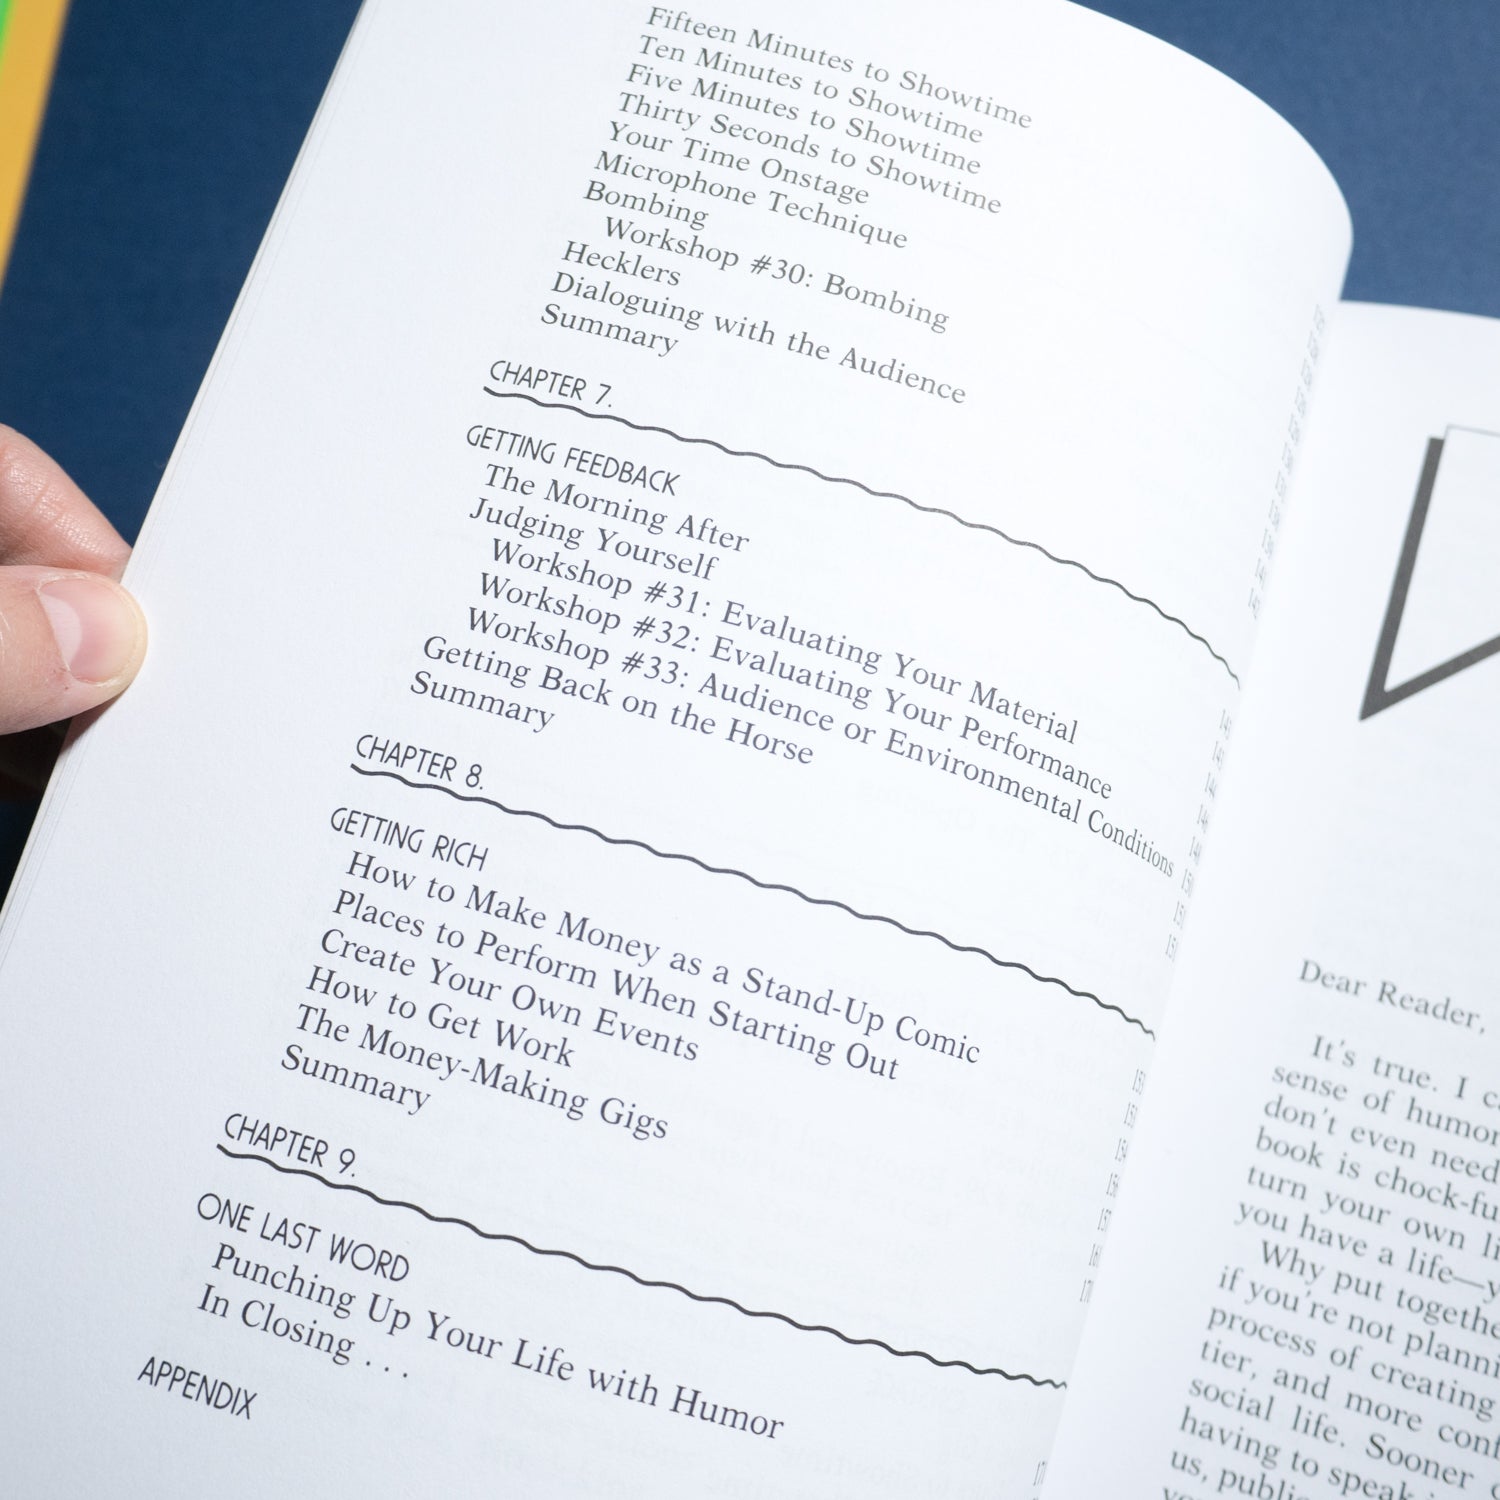 Fifteen Minutes to Showtime
Ten Minutes to Showtime
Five Minutes to Showtime
Thirty Seconds to Showtime
Your Time Onstage
Microphone Technique
Bombing
Workshop #30: Bombing
Hecklers
Dialoguing with the Audience
Summary
CHAPTER 7.
GETTING FEEDBACK
The Morning After
Judging Yourself
Workshop #31: Evaluating Your Material
Workshop #32: Evaluating Your Performance
Workshop #33: Audience or Environmental Conditions
Getting Back on the Horse
Summary
CHAPTER 8.
GETTING RICH
How to Make Money as a Stand-Up Comic
Places to Perform When Starting Out
Create Your Own Events
How to Get Work
The Money-Making Gigs
Summary
CHAPTER 9.
ONE LAST WORD
Punching Up Your Life with Humor
In Closing . . .
APPENDIX
Dear Reader,
It's true. I
sense of humor
don't even need
book is
turn your own
you have a life—
Why put
if you're not
process of creating
tier, and more
social life. Sooner
having to speak
us,